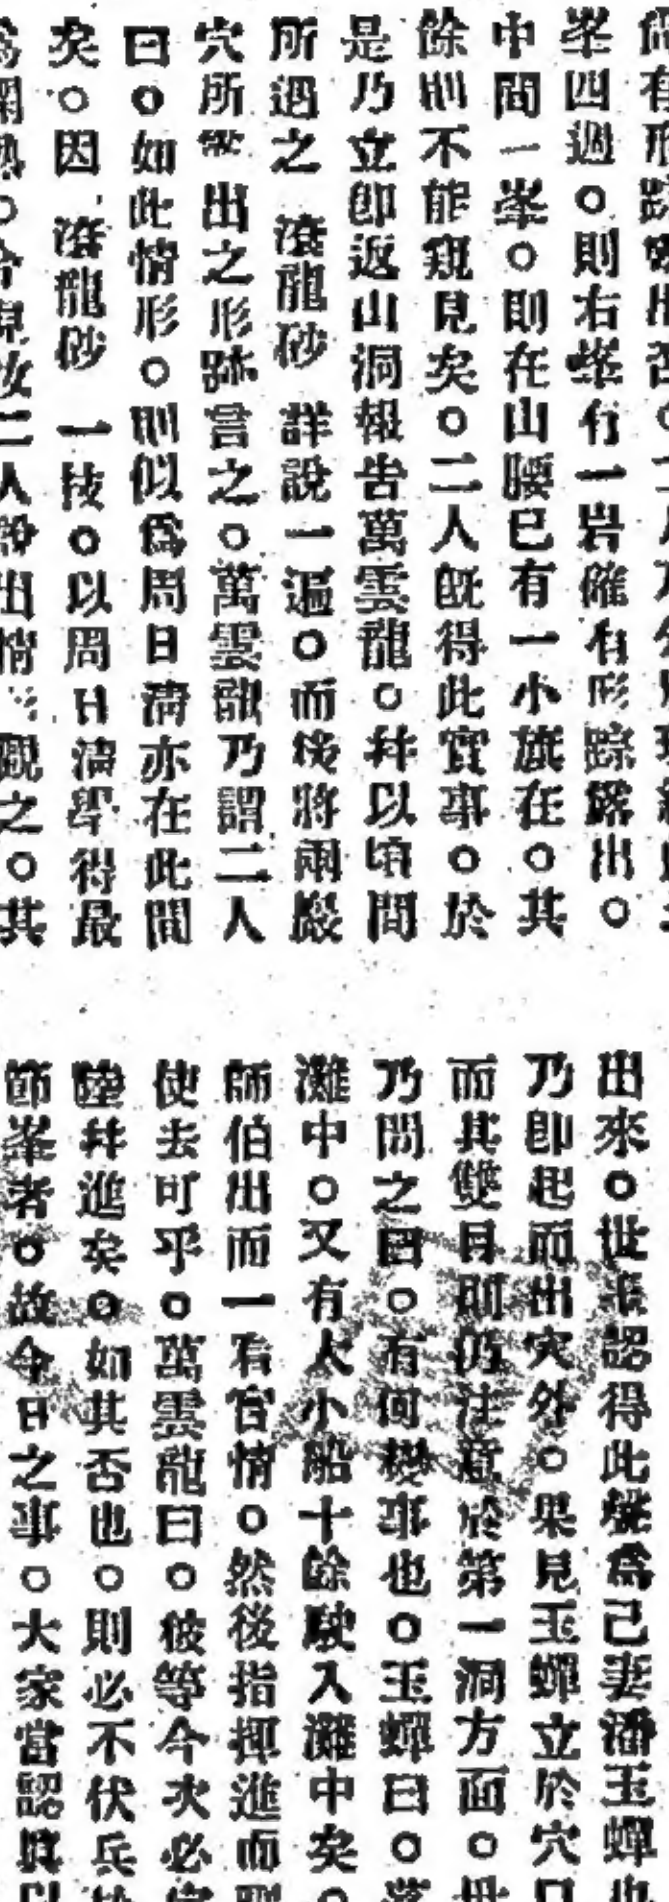 峯四週。則右峯有一岩確有形踪露出。
中間一峯。則在山腰已有一小旗在。其
餘則不能窺見矣。二人旣得此實事。於
是乃立卽返山洞報告萬雲龍。幷以頃間
所遇之 滾龍砂 詳說一遍。而後將兩巖
穴所 出之形跡言之。萬雲龍乃謂二人
曰。如此情形。則似爲周日淸亦在此間
矣。因 滾龍砂 一技。以周日淸學得最
今 二人 出情 觀之。其
出來。世 認得此聲爲己妻潘玉蟬也
乃卽起而出穴外。果見玉蟬立於穴口
而其雙目則仍注意於第一洞方面。世
乃問之曰。有何機事也。玉蟬曰。落
灘中。又有大小船十餘駛入灘中矣。
師伯出而一看官情。然後指揮進而
使去可乎。萬雲龍曰。彼等今次必
陸幷進矣。如其否也。則必不伏兵於
節峯者。故今日之事。大家當認眞以